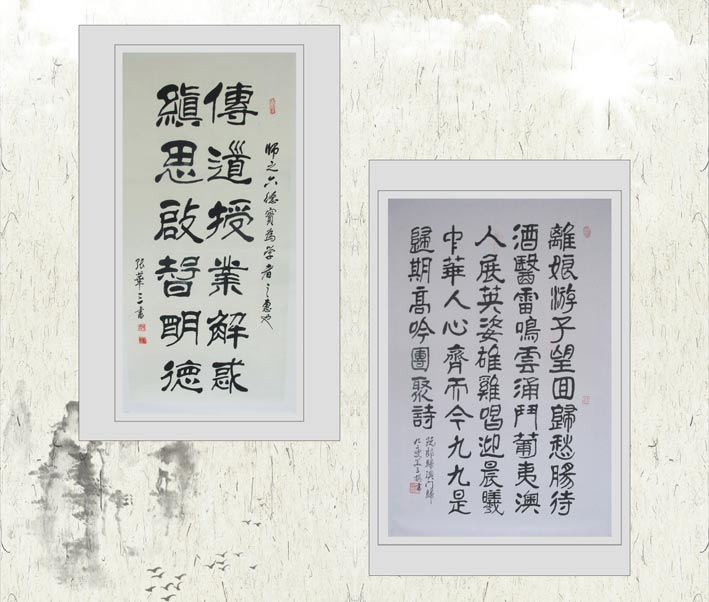 師之六德實為學者之惠也
傳道授業解惑
縝思啟智明德
張華三書
離娘游子望回歸愁腸待
酒醫雷鳴雲涌鬥葡夷澳
人展英姿雄雞唱迎晨曦
中華人心齊而今九九是
歸期高吟團聚詩
阮郎歸澳門歸